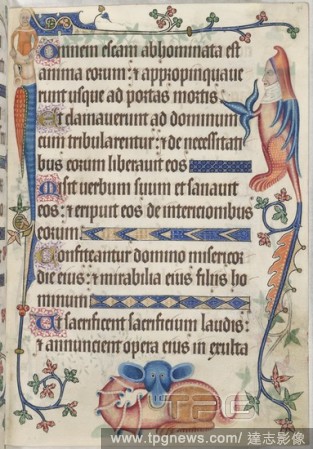 Omnem escam abhominata est
anima eorum: ⁊ appropinquave
runt usque ad portas mortis
Et clamaverunt ad dominum
cum tribularentur: ⁊ de necessitati
bus eorum liberavit eos
Misit verbum suum et sanavit
eos: ⁊ eripuit eos de interitionibus
eorum
Confiteantur domino misericor
die eius: ⁊ mirabilia eius filiis ho
minum
Et sacrificent sacrificium laudis:
⁊ annuncient opera eius in exulta
TPG
www.tpgnews.com / 達志影像